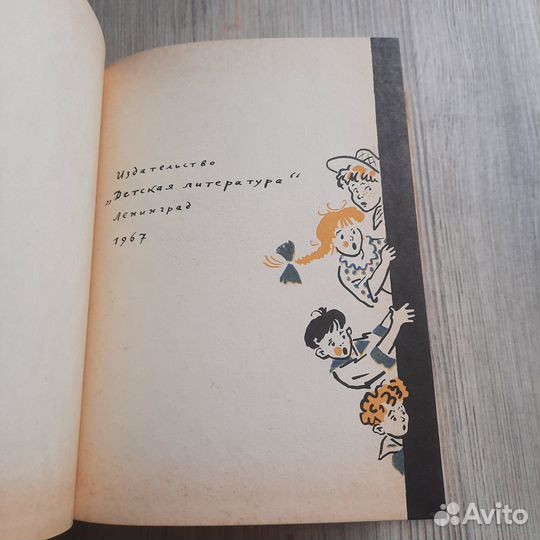 Издательство
„Детская литература“
Ленинград
1967
Avito